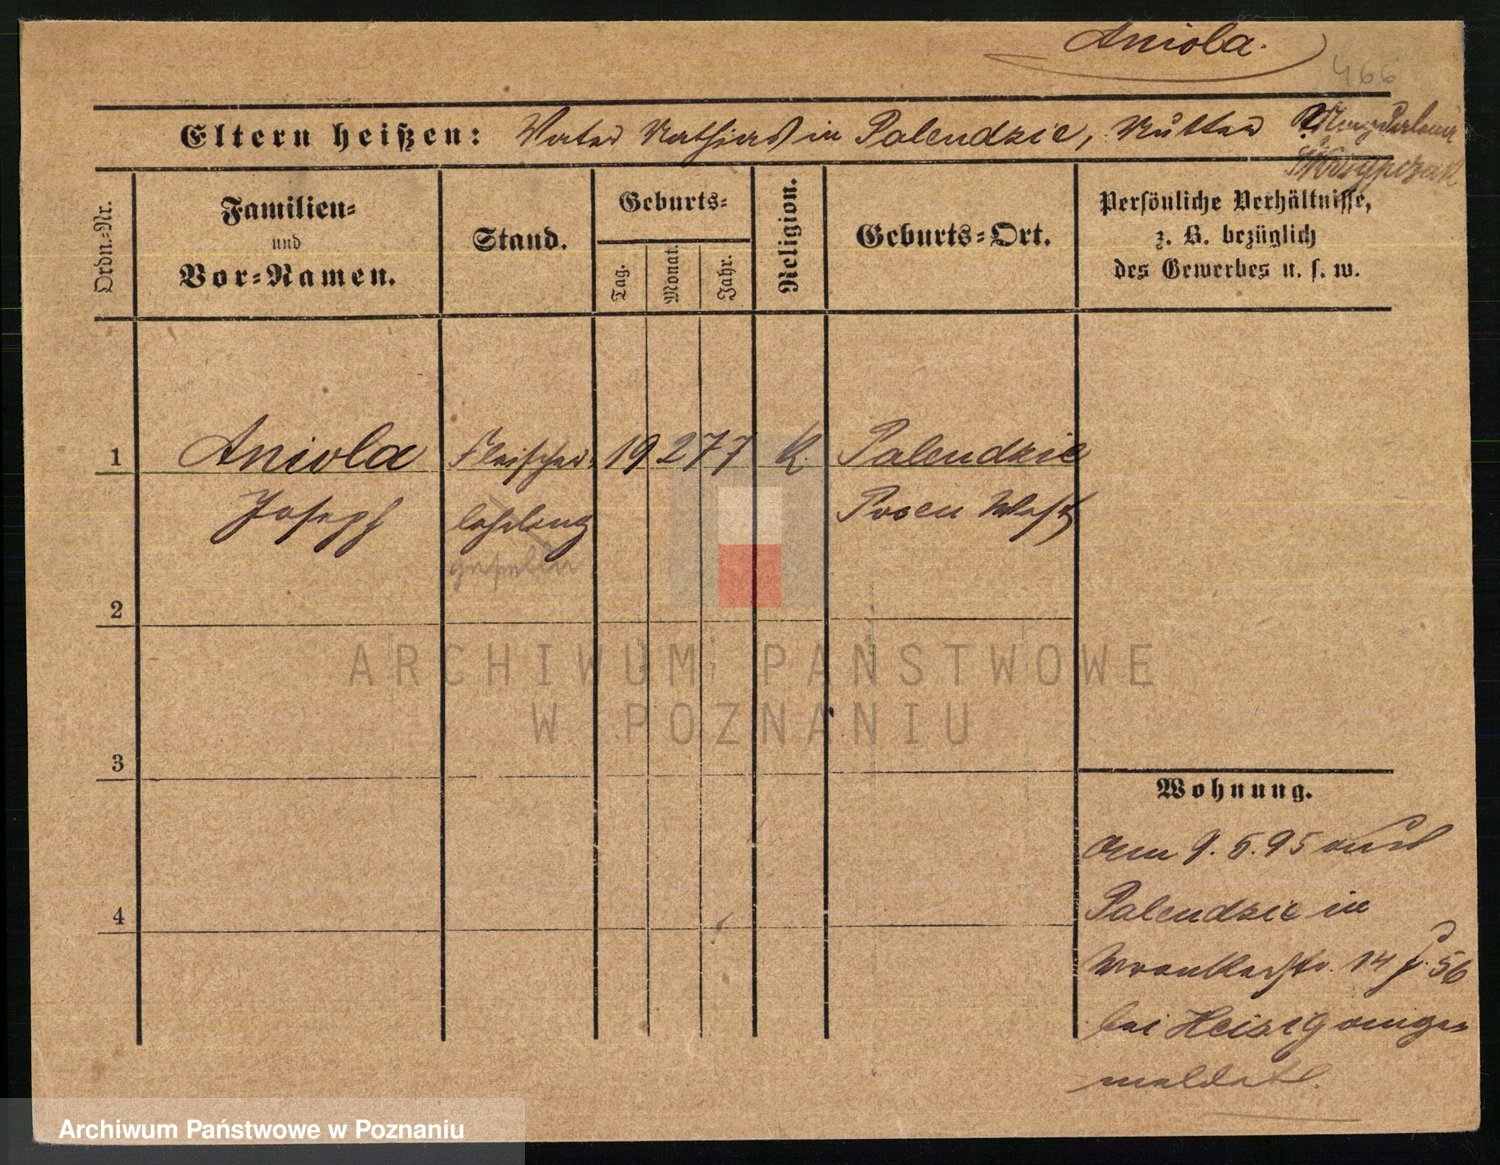 Aniola.
466
Eltern heißen: Vater Mathias in Palendzie, Mutter Magdalena
Ordn.-Nr.
Familien-
und
Vor-Namen.
Stand.
Geburts-
Tag.
Monat.
Jahr.
Religion.
Geburts-Ort.
Persönliche Verhältnisse,
z. B. bezüglich
des Gewerbes u. s. w.
1 Aniola Fleischer- 19 2 77 K. Palendzie
Joseph lehrling Posen West
geselle
2
ARCHIWUM PAŃSTWOWE
W POZNANIU
3
Wohnung.
Am 9. 5. 95 aus
4
Palendzie in
14 56
bei Heisig ange-
meldet.
Archiwum Państwowe w Poznaniu